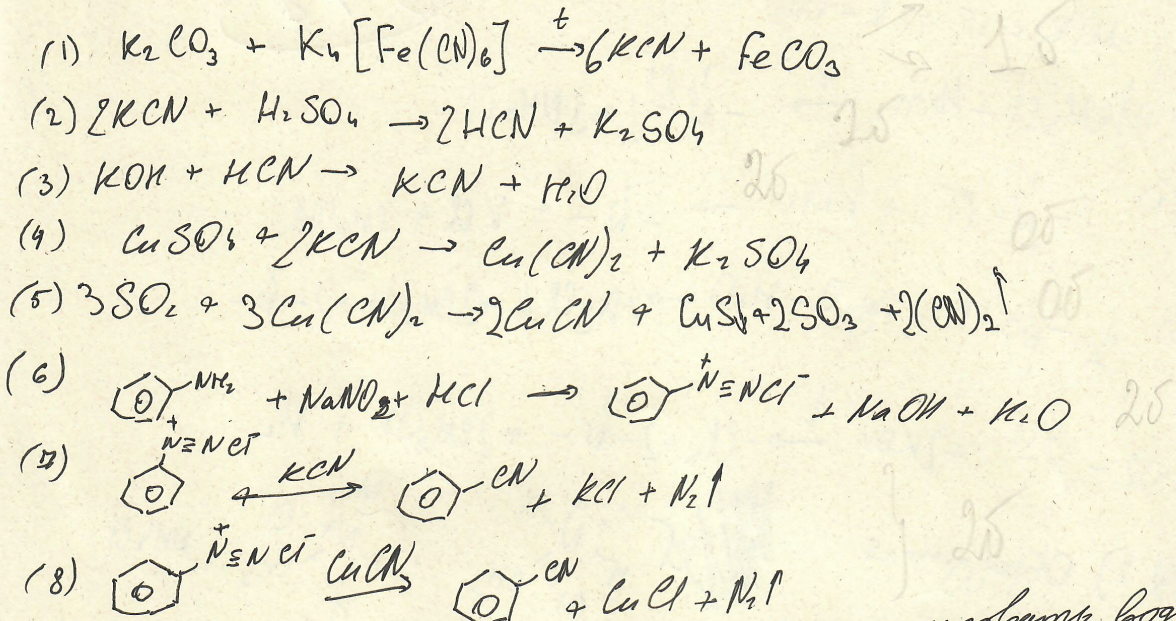 (1) K₂CO₃ + K₄[Fe(CN)₆] →ᵗ 6KCN + FeCO₃
(2) 2KCN + H₂SO₄ → 2HCN + K₂SO₄
(3) KOH + HCN → KCN + H₂O
(4) CuSO₄ + 2KCN → Cu(CN)₂ + K₂SO₄
(5) 3SO₂ + 3Cu(CN)₂ → 2CuCN + CuS↓ + 2SO₃ + 2(CN)₂↑
(6) NH₂ + NaNO₂ + HCl → N⁺≡NCl⁻ + NaOH + H₂O
(7) N⁺≡NCl⁻ KCN → CN + KCl + N₂↑
(8) N⁺≡NCl⁻ CuCN → CN + CuCl + N₂↑
1б
2б
2б
0б
0б
2б
2б